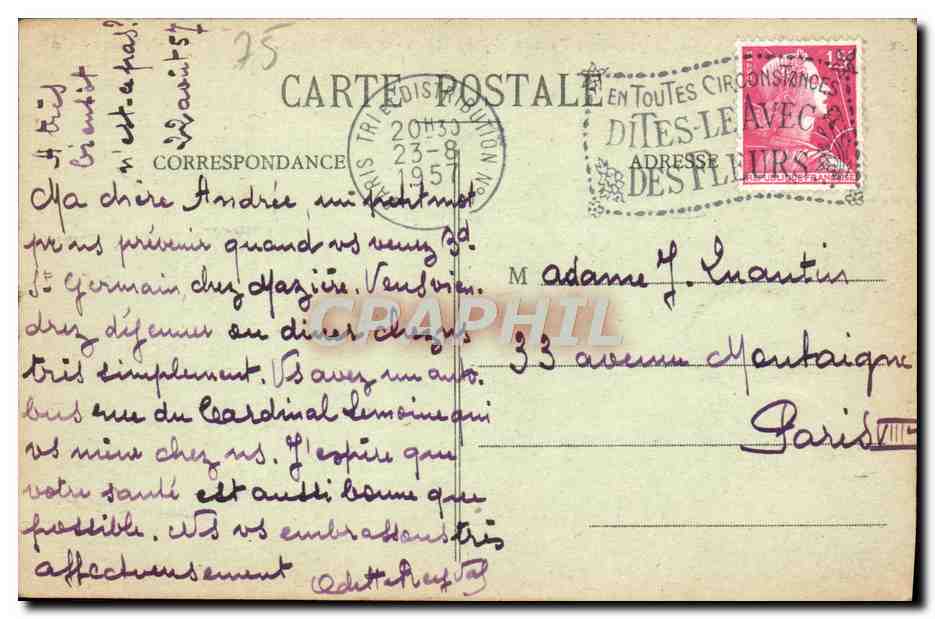 A très
bientôt
n'est-ce pas?
22 août 57
75
CARTE POSTALE
CORRESPONDANCE
ADRESSE
PARIS TRI et DISTRIBUTION No
20H30
23-8
1957
EN TOUTES CIRCONSTANCES
DITES-LE AVEC
DES FLEURS
Ma chère Andrée, un petit mot
pr ns prévenir quand vs venez Bd.
St Germain, chez Mazière. Vous vien.
drez déjeuner ou dîner chez ns
très simplement. Vs avez un auto.
bus rue du Cardinal Lemoine qui
vs mène chez ns. J'espère que
votre santé est aussi bonne que
possible. Ns vs embrassons très
affectueusement
Odette
Madame J. Quantin
33 avenue Montaigne
Paris VIIIe
CPAPHIL